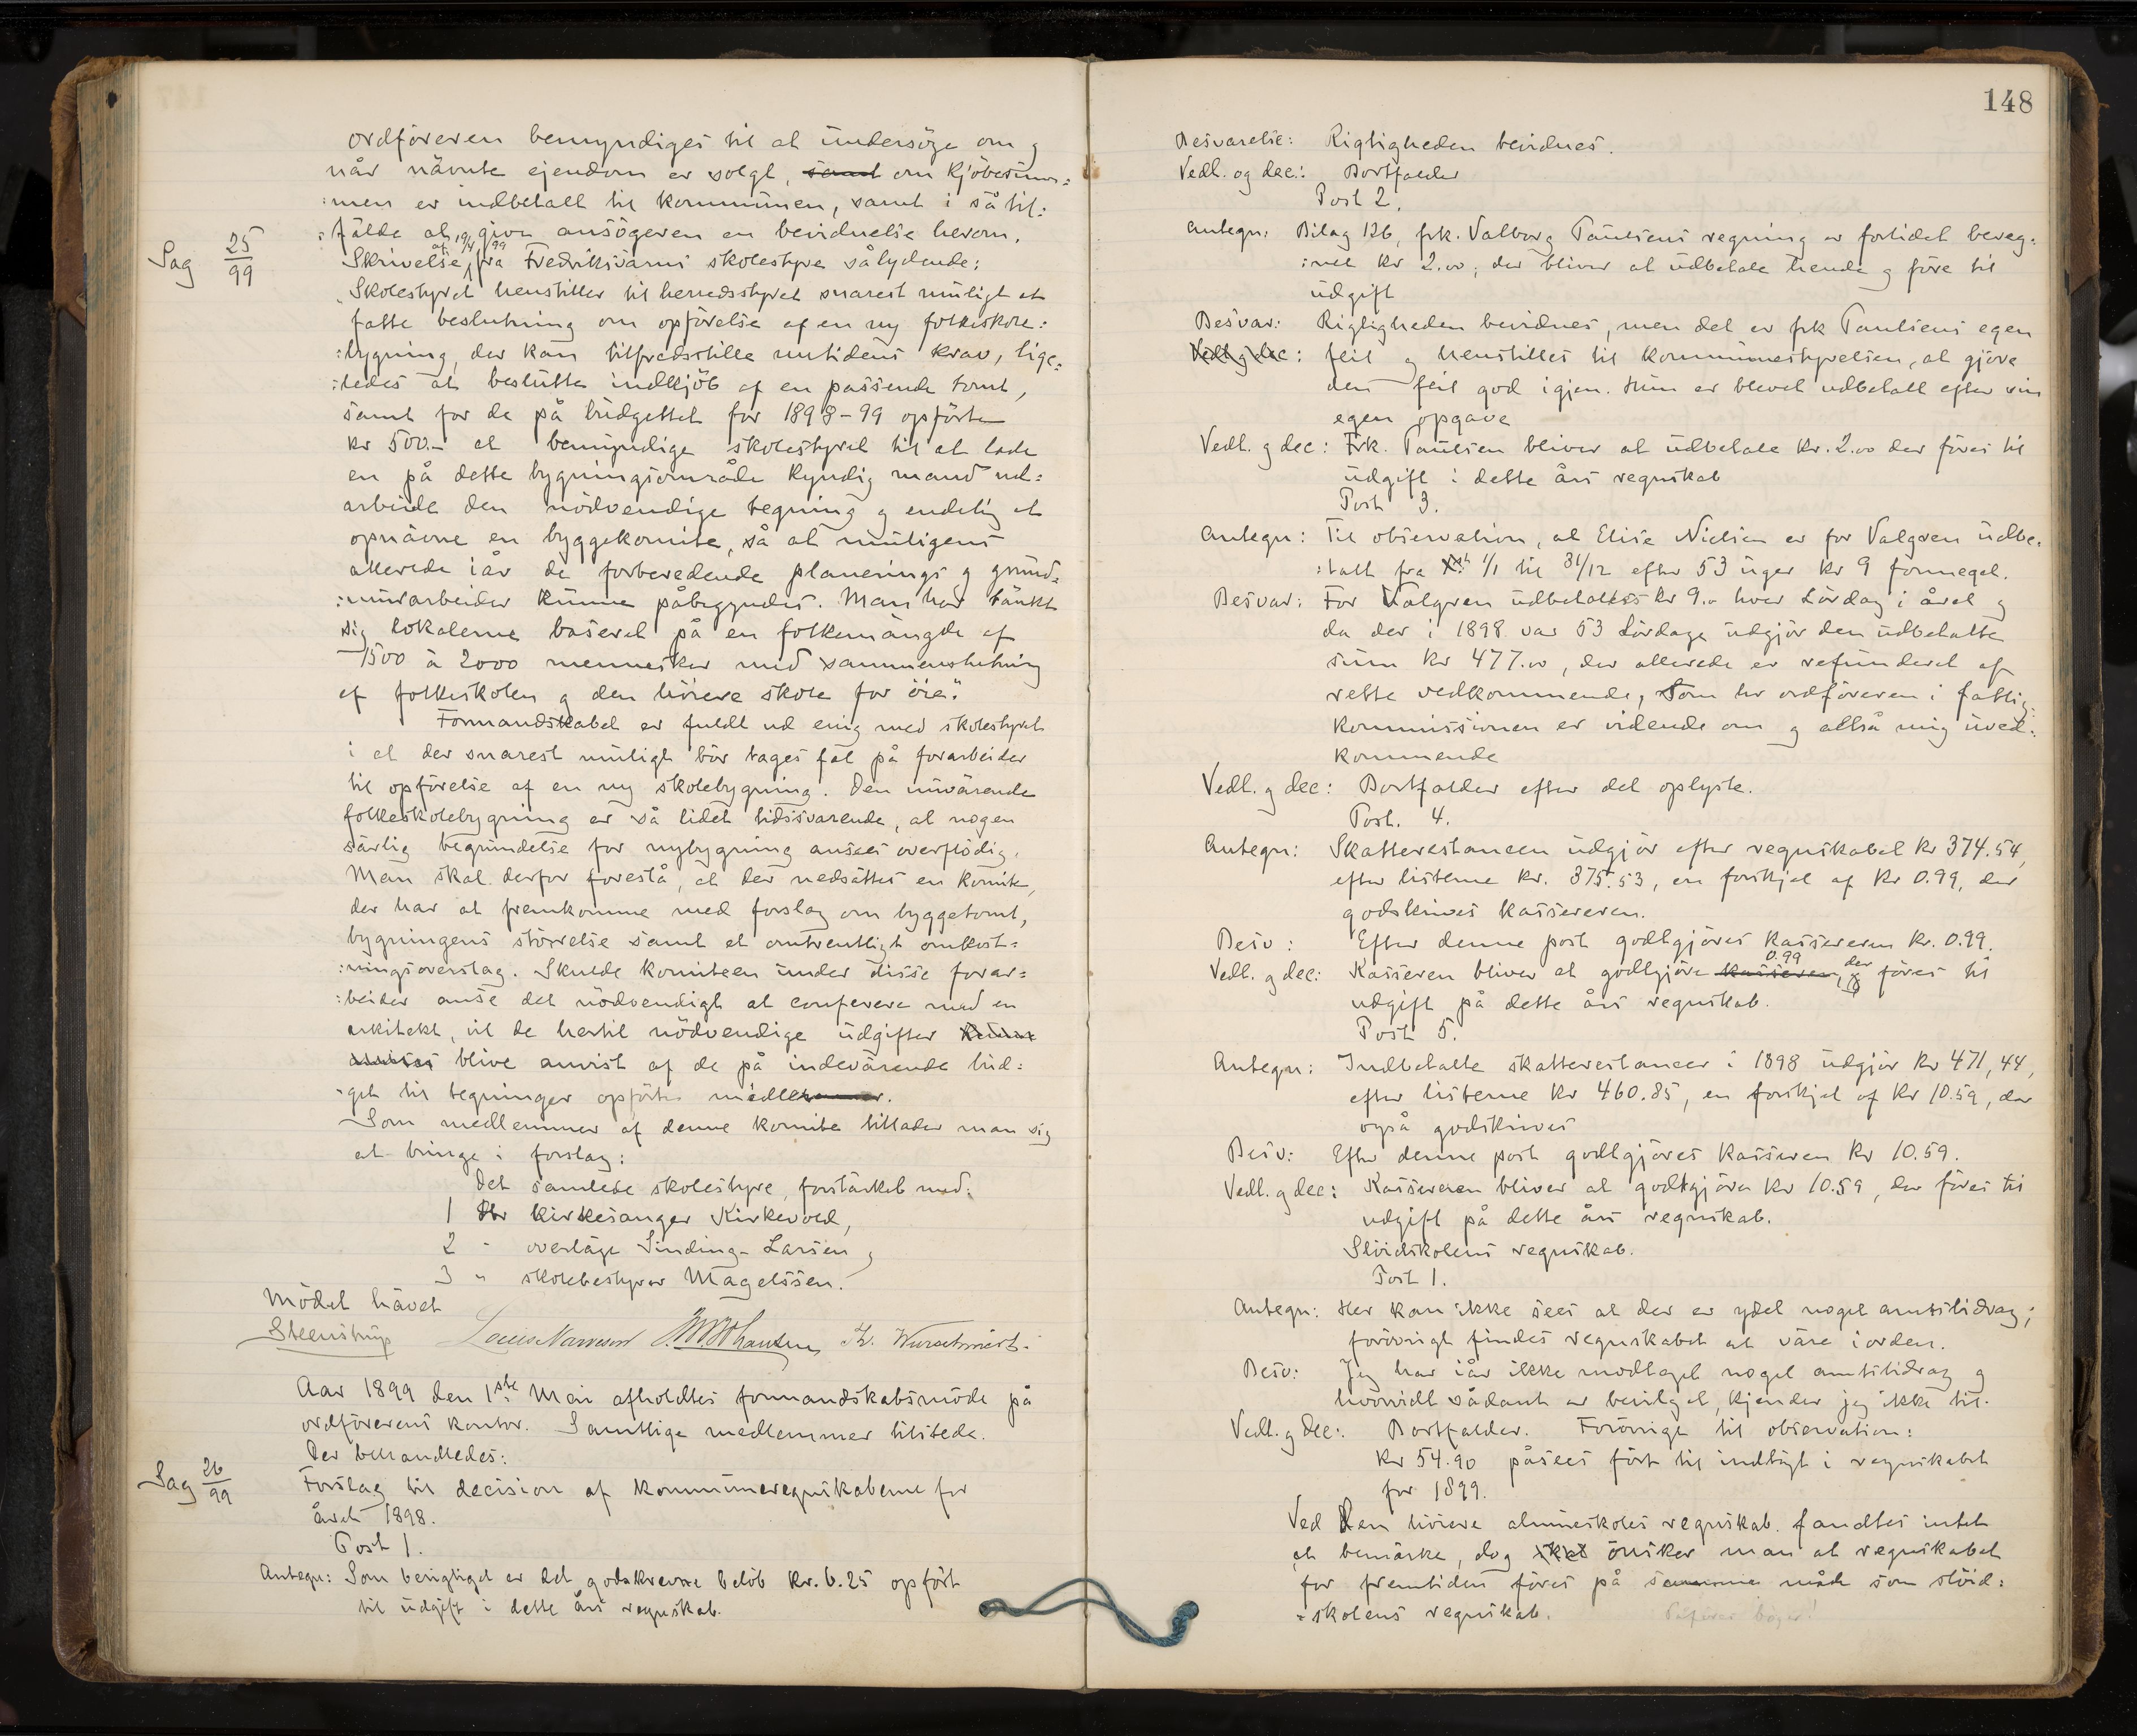 ordföreren bemyndiges til at undersöge om og
når nävnte ejendom er solgt, samt om kjöbesum=
:men er indbetalt til kommunen, samt i så til:
:fälde at give ansögeren en bevidnelse herom.
Sag 25/99
Skrivelse af 19/4 99 fra Fredriksvärns skolestyre sålydende:
„Skolestyret henstiller til herredsstyret snarest muligt at
fatte beslutning om opförelse af en ny folkeskole:
:bygning, der kan tilfredsstille nutidens krav, lige=
:ledes at beslutte indkjöb af en passende tomt,
samt for de på budgettet for 1898-99 opförte
kr 500.- at bemyndige skolestyret til at lade
en på dette bygningsområde kyndig mand ud=
arbeide den nödvendige tegning og endelig at
opnävne en byggekomite, så at muligens
allerede iår de forberedende planerings og grund=
:mursarbeider kunne påbegyndes. Man har tänkt
sig lokalerne baseret på en folkemängde af
1500 à 2000 mennesker med sammenslutning
af folkeskolen og den höiere skole for öie."
Formandskabet er fuldt ud enig med skolestyret
i at der snarest muligt bör tages fat på forarbeider
til opförelse af en ny skolebygning. Den nuvärende
folkeskolebygning er så lidet tidssvarende, at nogen
särlig begrundelse for nybygning ansees overflödig.
Man skal derfor foreslå, at der nedsättes en komite,
der har at fremkomme med forslag om byggetomt,
bygningens störrelse samt et omtrentligt omkost=
:ningsoverslag. Skulde komiteen under disse forar=
:beider anse det nödvendigt at conferere med en
arkitekt, vil de hertil nödvendige udgifter kunne
blive anvist af de på indevärende bud:
-get til tegninger opförte midler.
Som medlemmer af denne komite tillader man sig
at bringe i forslag:
Det samlede skolestyre, forstärket med:
1 Hr kirkesanger Kirkevold,
2 " overläge Sinding-Larsen og
3 " skolebestyrer Magelssen.
Mödet hävet
Steenstrup Th. Wurschmidt.
Aar 1899 den 1ste Mai afholdtes formandskabsmöde på
ordförerens kontor. Samtlige medlemmer tilstede.
Der behandledes:
Sag 26/99
Forslag til decision af kommuneregnskaberne for
året 1898.
Post 1.
Antegn: Som berigtiget er det godskrevne belöb kr. 6.25 opfört
til udgift i dette års regnskab.
148
Besvarelse: Rigtigheden bevidnes.
Vedl. og dec.: Bortfalder
Post 2.
Antegn: Bilag 126, frk. Valborg Paulsens regning er fortidet bereg=
:net kr 2.00, der bliver at udbetale hende og före til
udgift
Besvar: Rigtigheden bevidnes, men det er frk Paulsens egen
Vedl. og dec: feil og henstilles til kommunestyrelsen, at gjöre
den feil god igjen. Hun er blevet udbetalt efter sin
egen opgave
Vedl. og dec: Frk. Paulsen bliver at udbetale kr. 2.00 der föres til
udgift i dette års regnskab
Post 3.
Antegn: Til observation, at Elise Nielsen er for Valgren udbe=
:talt fra 1/1 til 31/12 efter 53 uger kr 9 formeget.
Besvar: For Valgren udbetaltes kr 9.- hver Lördag i året og
da der i 1898 var 53 Lördage udgjör den udbetalte
sum kr 477.00, der allerede er refunderet af
rette vedkommende, som hr ordföreren i fattig=
kommissionen er vidende om og altså mig uved:
kommende
Vedl. og dec: Bortfalder efter det oplyste.
Post. 4.
Antegn: Skatterestancen udgjör efter regnskabet kr 374.54,
efter listerne kr. 375.53, en forskjel af kr 0.99, der
godskrives kassereren.
Besv: Efter denne post godtgjöres kassereren kr. 0.99.
Vedl. og dec: Kasseren bliver at godtgjöre kasseren, 0.99 der föres til
udgift på dette års regnskab.
Post 5.
Antegn: Indbetalte skatterestancer i 1898 udgjör kr 471,44,
efter listerne kr 460.85, en forskjel af kr 10.59, der
også godskrives
Besv: Efter denne post godtgjöres kasseren kr 10.59.
Vedl. og dec: Kassereren bliver at godtgjöre kr 10.59, der föres til
udgift på dette års regnskab.
Slöidskolens regnskab.
Post 1.
Antegn: Her kan ikke sees at der er ydet noget amtsbidrag;
forövrigt findes regnskabet at väre i orden.
Besv: Jeg har iår ikke modtaget noget amtsbidrag og
hvorvidt sådant er bevilget, kjender jeg ikke til.
Vedl. og dec: Bortfalder. Forövrigt til observation:
kr 54.90 påsees fört til indtägt i regnskabet
for 1899.
Ved Den höiere almueskoles regnskab fandtes intet
at bemärke, dog önsker man at regnskabet
for fremtiden föres på samme måde som slöid:
=skolens regnskab.